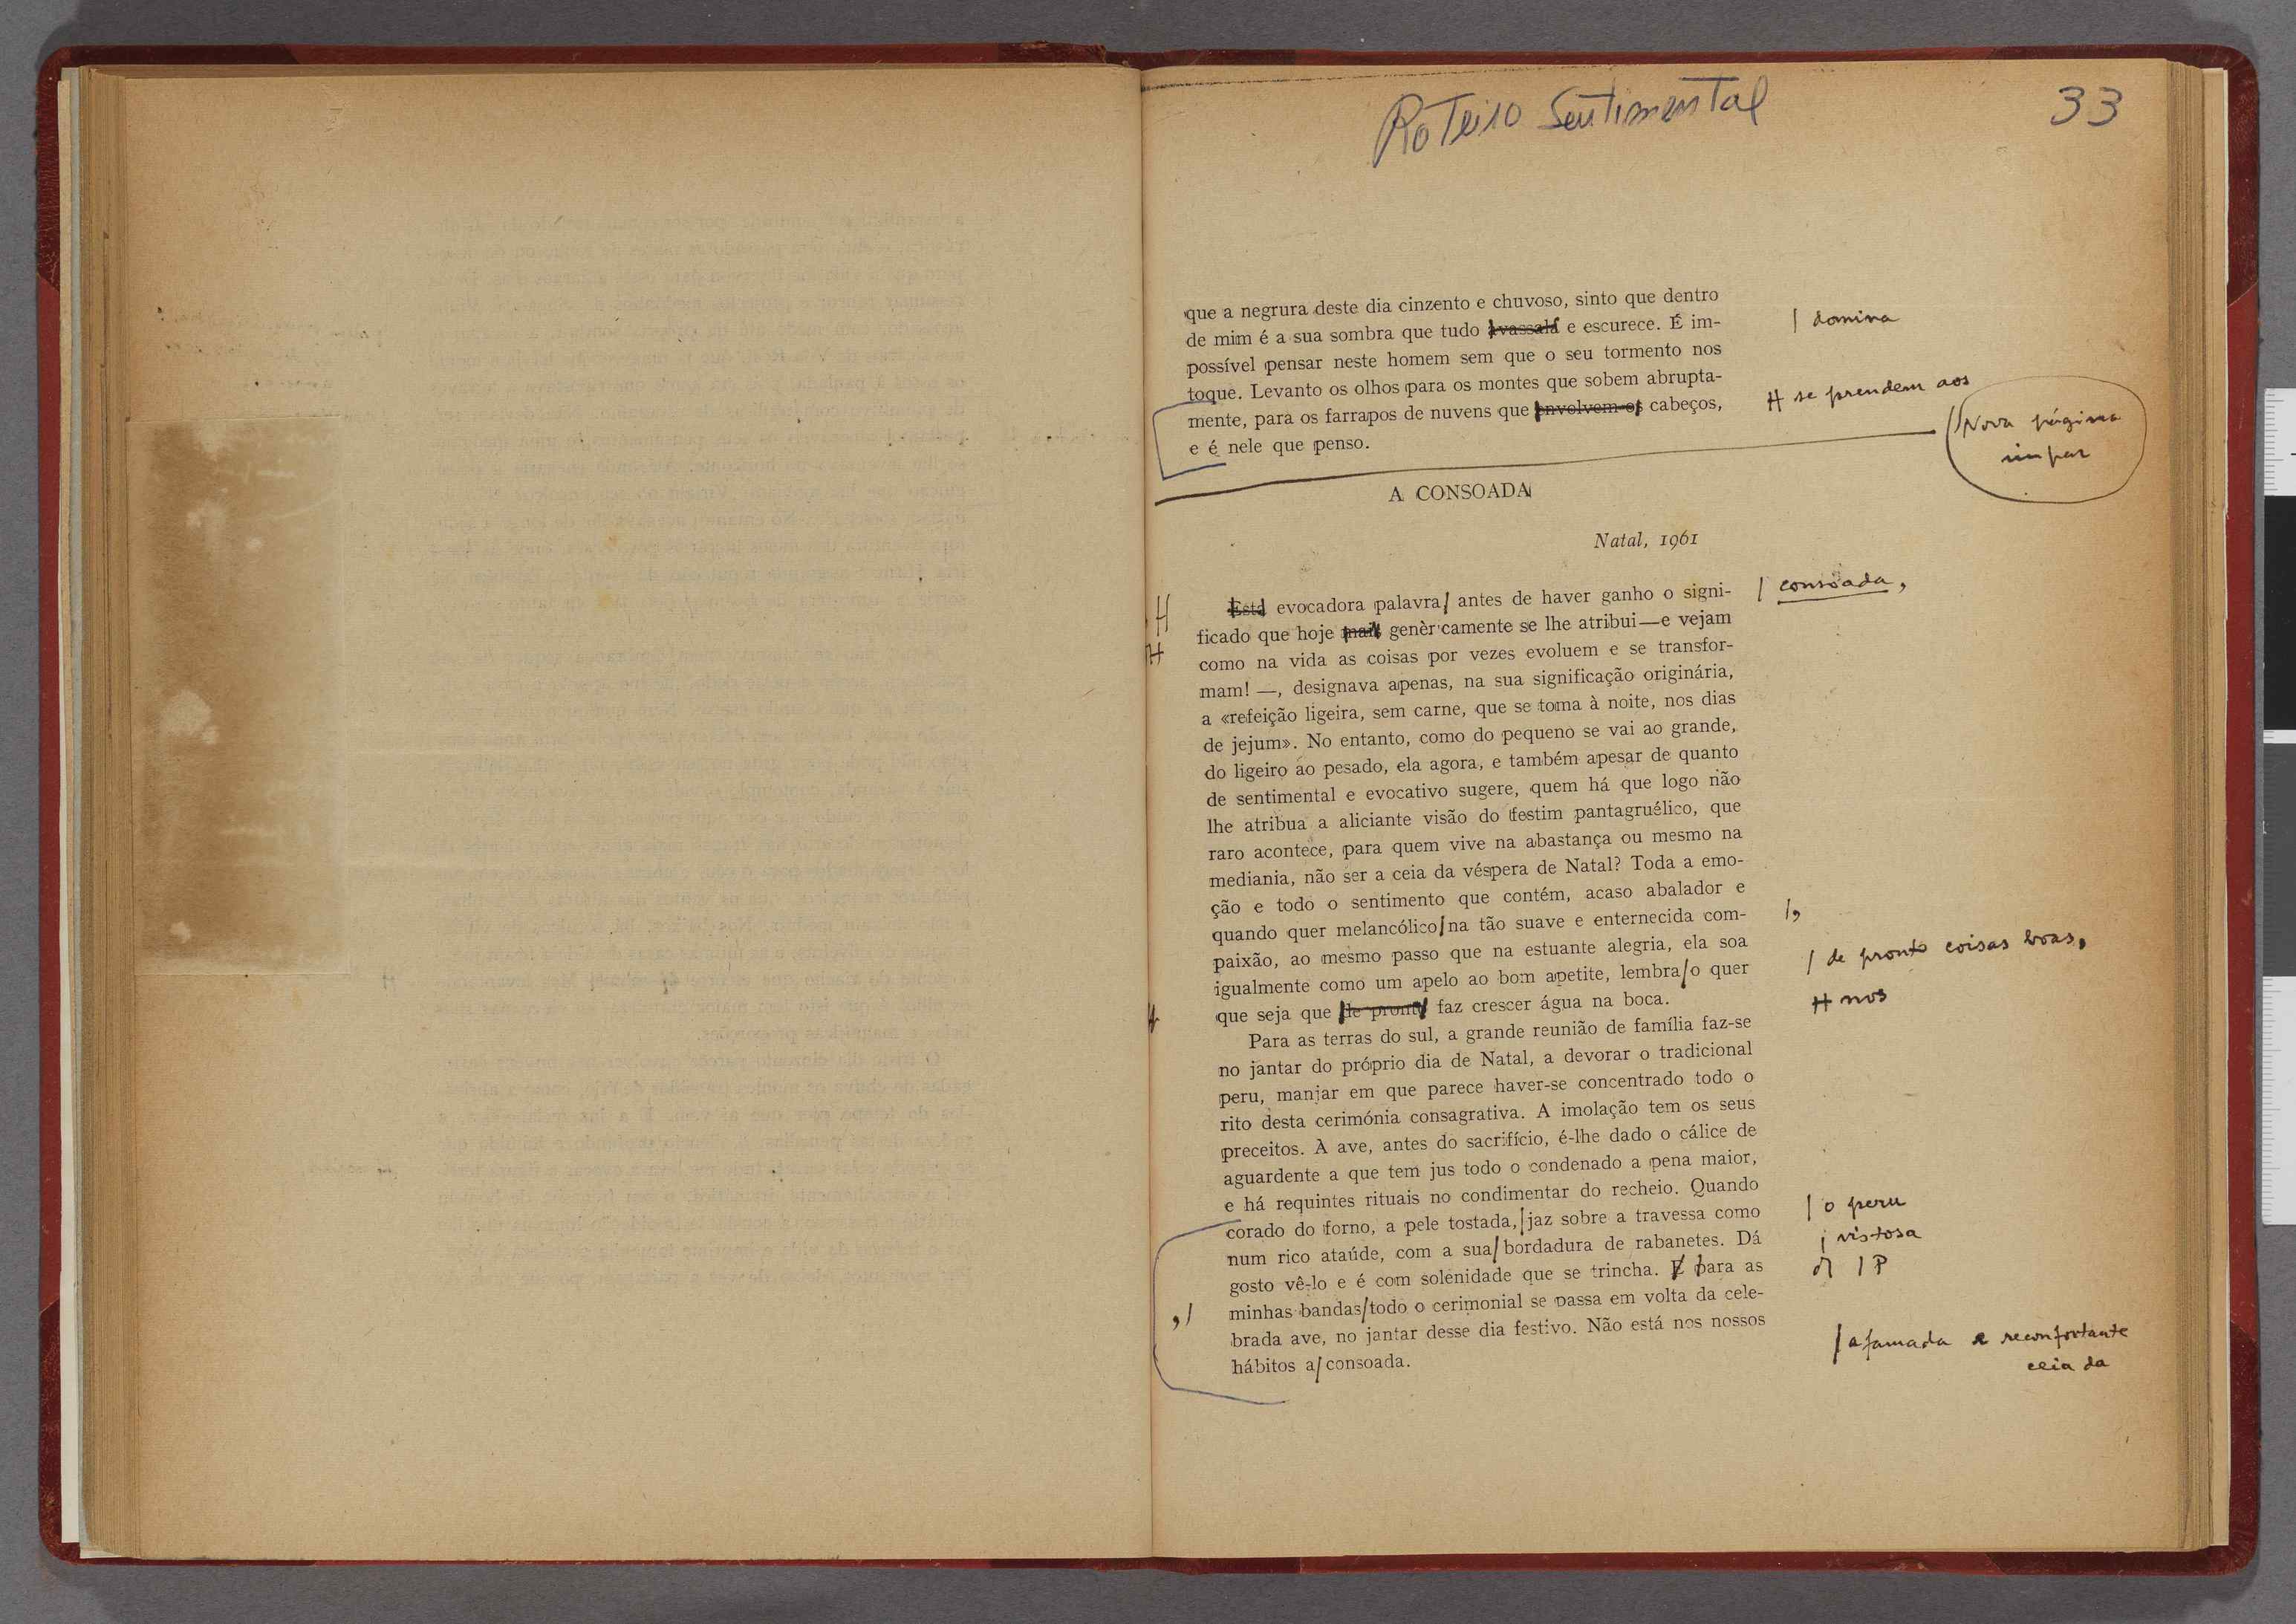 Roteiro Sentimental
33
que a negrura deste dia cinzento e chuvoso, sinto que dentro
de mim é a sua sombra que tudo avassala e escurece. É im-
| domina
possível pensar neste homem sem que o seu tormento nos
toque. Levanto os olhos para os montes que sobem abrupta-
mente, para os farrapos de nuvens que envolvem os cabeços,
H se prendem aos
e é nele que penso.
Nova página
impar
A CONSOADA
Natal, 1961
Esta evocadora palavra/ antes de haver ganho o signi-
| consoada,
ficado que hoje mais genèricamente se lhe atribui—e vejam
como na vida as coisas por vezes evoluem e se transfor-
mam! —, designava apenas, na sua significação originária,
a «refeição ligeira, sem carne, que se toma à noite, nos dias
de jejum». No entanto, como do pequeno se vai ao grande,
do ligeiro ao pesado, ela agora, e também apesar de quanto
de sentimental e evocativo sugere, quem há que logo não
lhe atribua a aliciante visão do festim pantagruélico, que
raro acontece, para quem vive na abastança ou mesmo na
mediania, não ser a ceia da véspera de Natal? Toda a emo-
ção e todo o sentimento que contém, acaso abalador e
quando quer melancólico/na tão suave e enternecida com-
|,
paixão, ao mesmo passo que na estuante alegria, ela soa
igualmente como um apelo ao bom apetite, lembra/o quer
| de pronto coisas boas,
que seja que de pronto faz crescer água na boca.
H nos
Para as terras do sul, a grande reunião de família faz-se
no jantar do próprio dia de Natal, a devorar o tradicional
peru, manjar em que parece haver-se concentrado todo o
rito desta cerimónia consagrativa. A imolação tem os seus
preceitos. A ave, antes do sacrifício, é-lhe dado o cálice de
aguardente a que tem jus todo o condenado a pena maior,
e há requintes rituais no condimentar do recheio. Quando
corado do forno, a pele tostada,/jaz sobre a travessa como
| o peru
num rico ataúde, com a sua/bordadura de rabanetes. Dá
| vistosa
gosto vê-lo e é com solenidade que se trincha. E para as
| P
minhas bandas/todo o cerimonial se passa em volta da cele-
,/
brada ave, no jantar desse dia festivo. Não está nos nossos
hábitos a/consoada.
| afamada e reconfortante
ceia da